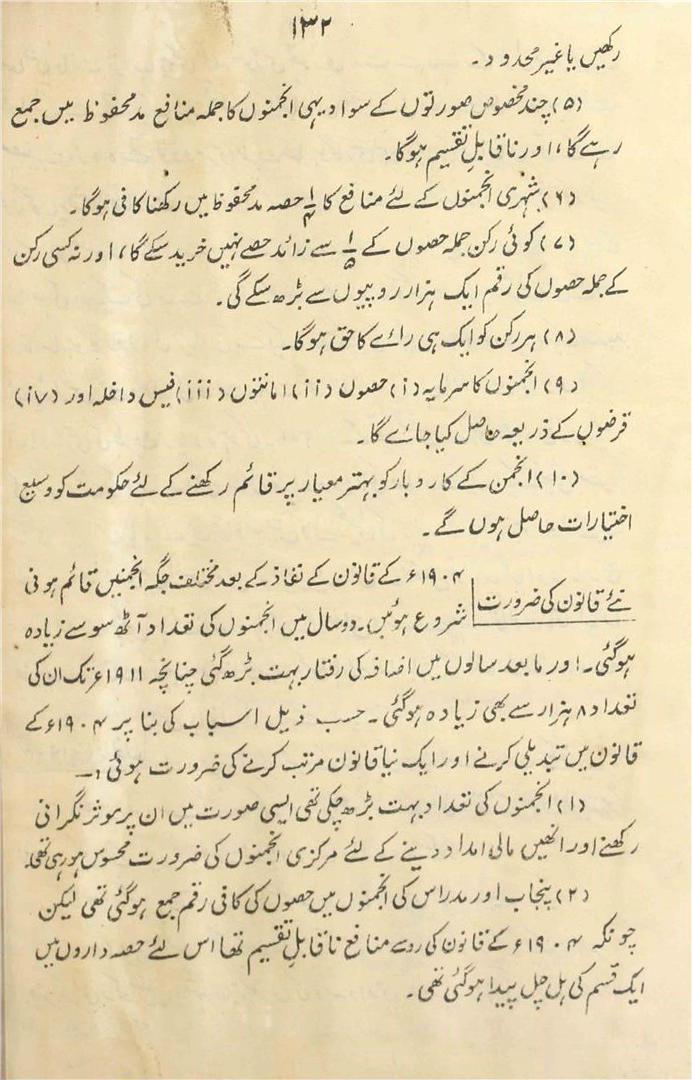 ۱۳۲
رکھیں یا غیر محدود۔
(۵) چند مخصوص صورتوں کے سوا دیہی انجمنوں کا جملہ منافع مد محفوظ میں جمع
رہے گا، اور ناقابلِ تقسیم ہوگا۔
(۶) شہری انجمنوں کے لئے منافع کا ۱/۴ حصہ مد محفوظ میں رکھنا کافی ہوگا۔
(۷) کوئی رکن جملہ حصوں کے ۱/۵ سے زائد حصے نہیں خرید سکے گا، اور نہ کسی رکن
کے جملہ حصوں کی رقم ایک ہزار روپیوں سے بڑھ سکے گی۔
(۸) ہر رکن کو ایک ہی رائے کا حق ہوگا۔
(۹) انجمنوں کا سرمایہ (i) حصوں (ii) امانتوں (iii) فیس داخلہ اور (iv)
قرضوں کے ذریعہ حاصل کیا جائے گا۔
(۱۰) انجمن کے کاروبار کو بہتر معیار پر قائم رکھنے کے لئے حکومت کو وسیع
اختیارات حاصل ہوں گے۔
نئے قانون کی ضرورت
۱۹۰۴ء کے قانون کے نفاذ کے بعد مختلف جگہ انجمنیں قائم ہونی
شروع ہوئیں۔ دو سال میں انجمنوں کی تعداد آٹھ سو سے زیادہ
ہوگئی۔ اور مابعد سالوں میں اضافہ کی رفتار بہت بڑھ گئی چنانچہ ۱۹۱۱ء تک ان کی
تعداد ۸ ہزار سے بھی زیادہ ہوگئی۔ حسب ذیل اسباب کی بنا پر ۱۹۰۴ء کے
قانون میں تبدیلی کرنے اور ایک نیا قانون مرتب کرنے کی ضرورت ہوئی :۔
(۱) انجمنوں کی تعداد بہت بڑھ چکی تھی ایسی صورت میں ان پر موثر نگرانی
رکھنے اور انھیں مالی امداد دینے کے لئے مرکزی انجمنوں کی ضرورت محسوس ہو رہی تھی۔
(۲) پنجاب اور مدراس کی انجمنوں میں حصوں کی کافی رقم جمع ہوگئی تھی لیکن
چونکہ ۱۹۰۴ء کے قانون کی رو سے منافع ناقابلِ تقسیم تھا اس لئے حصہ داروں میں
ایک قسم کی ہل چل پیدا ہوگئی تھی۔